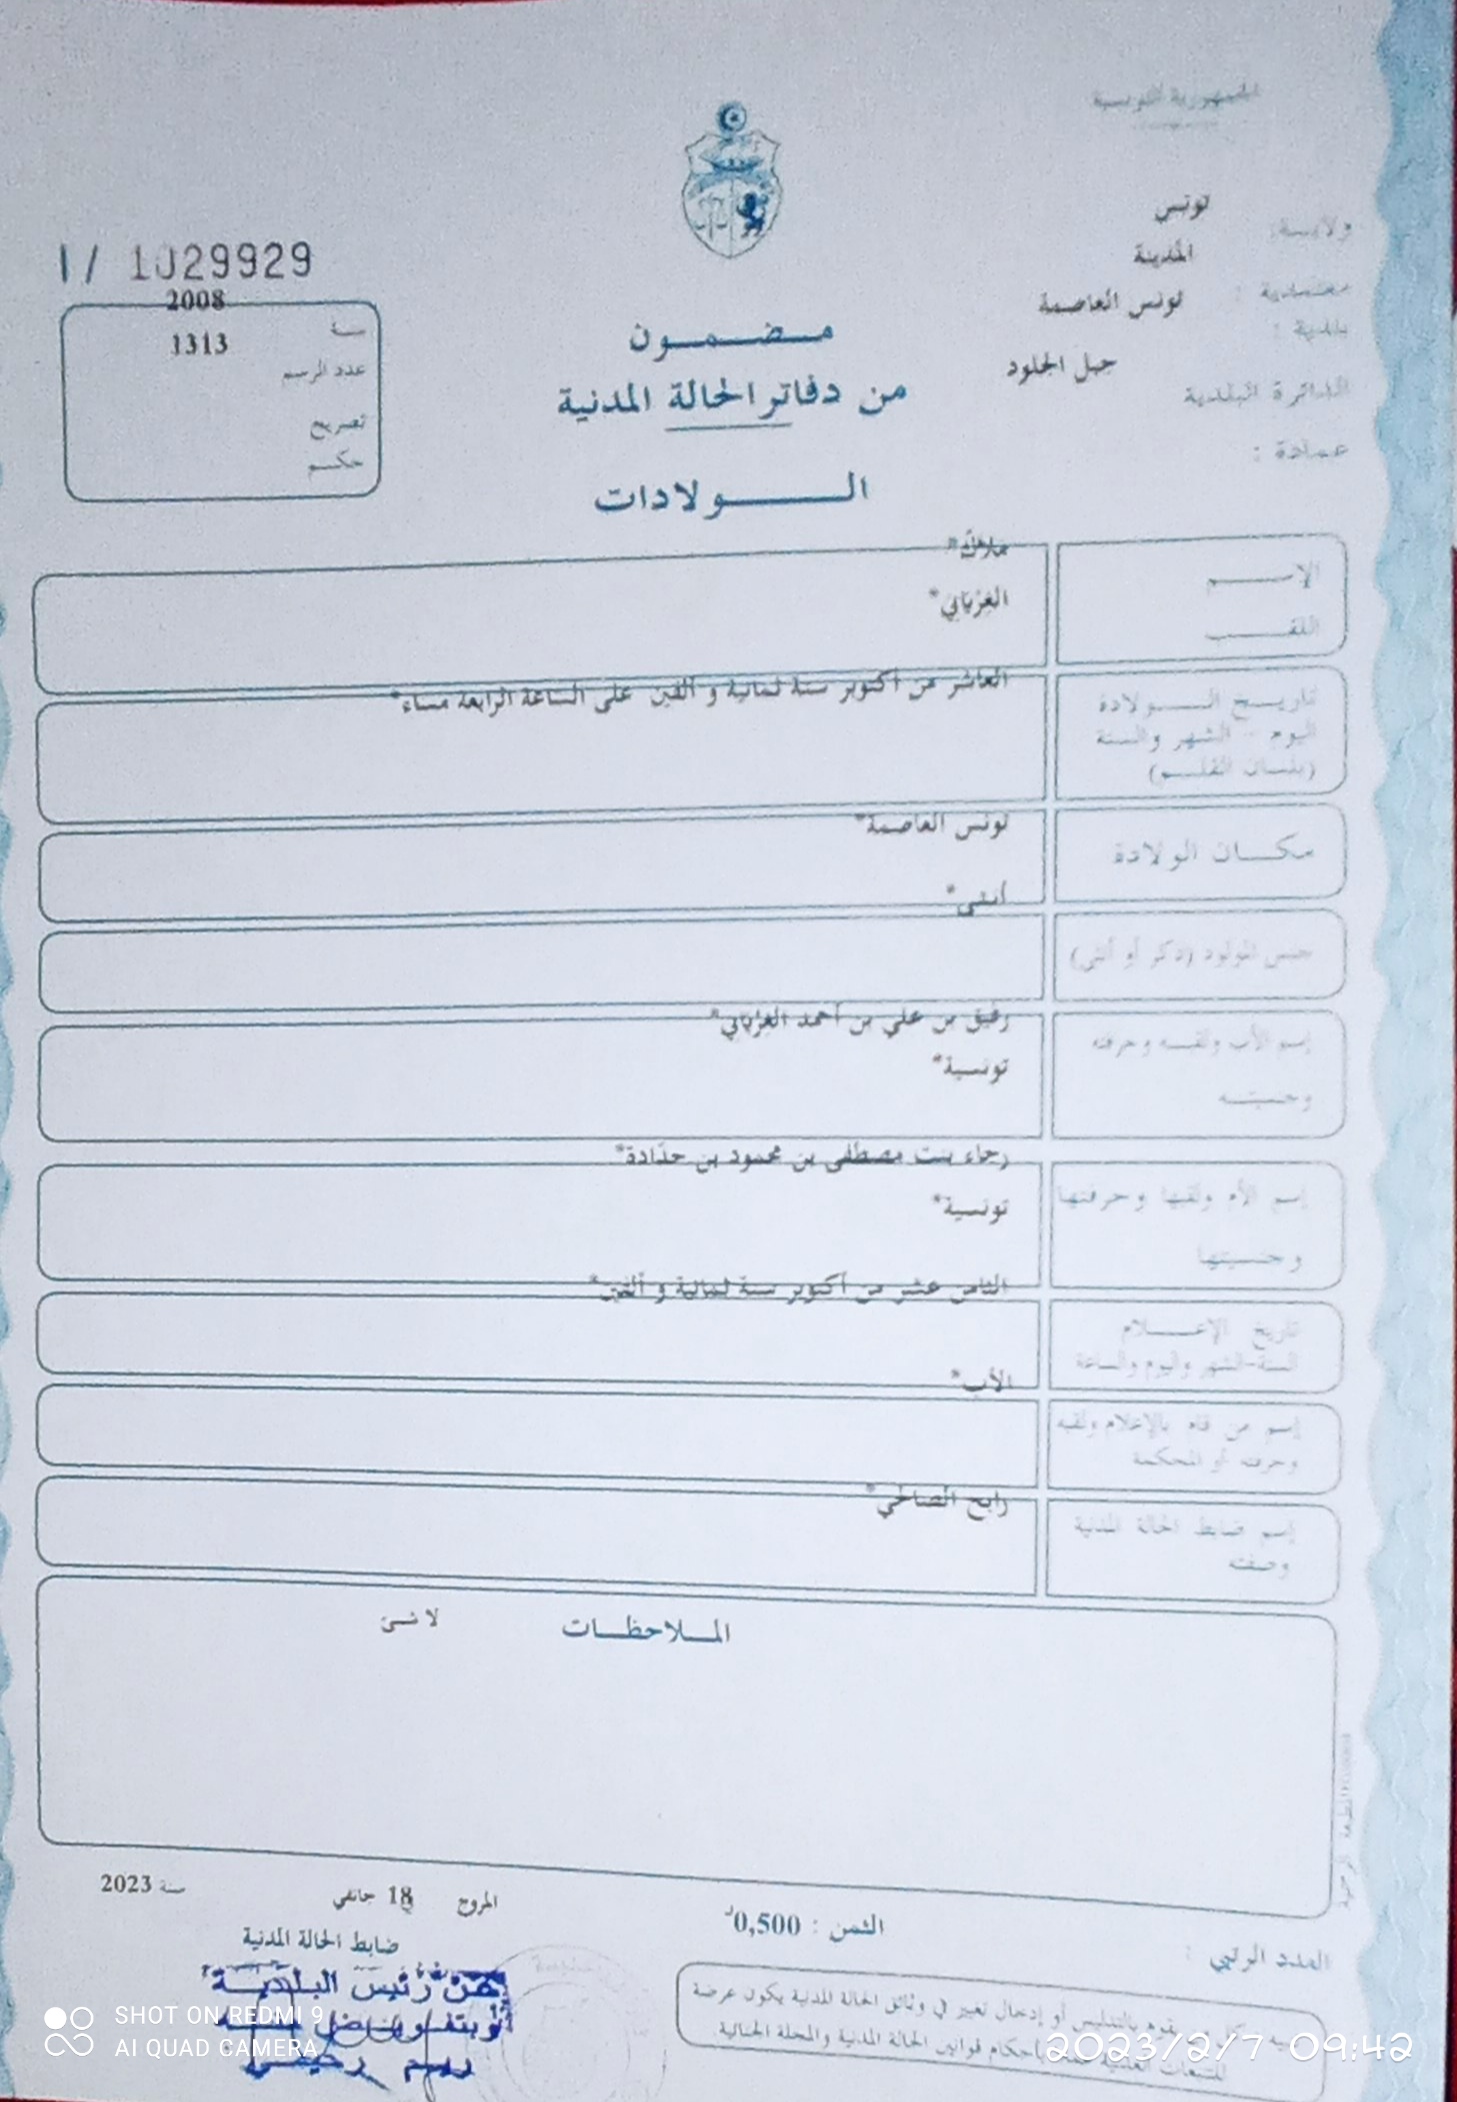 الجمهورية التونسية
ولايـة: تونس
معتمدية : المدينة
بلدية : تونس العاصمة
الدائرة البلدية جبل الجلود
عمادة :
I/ 1029929
سنة 2008
عدد الرسم 1313
تصريح
حكم
مضمون
من دفاتر الحالة المدنية
الولادات
الإسم ملاك*
اللقب الغزياني*
تاريخ الولادة العاشر من أكتوبر سنة ثمانية و ألفين على الساعة الرابعة مساء*
اليوم - الشهر والسنة
(بلسان القلم)
مكان الولادة تونس العاصمة*
جنس المولود (ذكر أو أنثى) أنثى*
إسم الأب ولقبه وحرفته رفيق بن علي بن أحمد الغزياني*
وجنسيته تونسية*
إسم الأم ولقبها وحرفتها رجاء بنت مصطفى بن محمود بن حدادة*
وجنسيتها تونسية*
تاريخ الإعلام الثامن عشر من أكتوبر سنة ثمانية و ألفين*
السنة-الشهر واليوم والساعة
إسم من قام بالإعلام ولقبه الأب*
وحرفته أو المحكمة
إسم ضابط الحالة المدنية رابح الصالحي*
وصفته
الملاحظات لا شئ
المروج 18 جانفي سنة 2023
ضابط الحالة المدنية
عن رئيس البلدية
وبتفويض منه
رحيمي
الثمن : 0,500د
العدد الرتبي :
كل من يقوم بالتدليس أو إدخال تغيير في وثائق الحالة المدنية يكون عرضة
للتتبعات العدلية بأحكام قوانين الحالة المدنية والمجلة الجنائية
المطبعة الرسمية
SHOT ON REDMI 9
AI QUAD CAMERA
2023/2/7 09:42